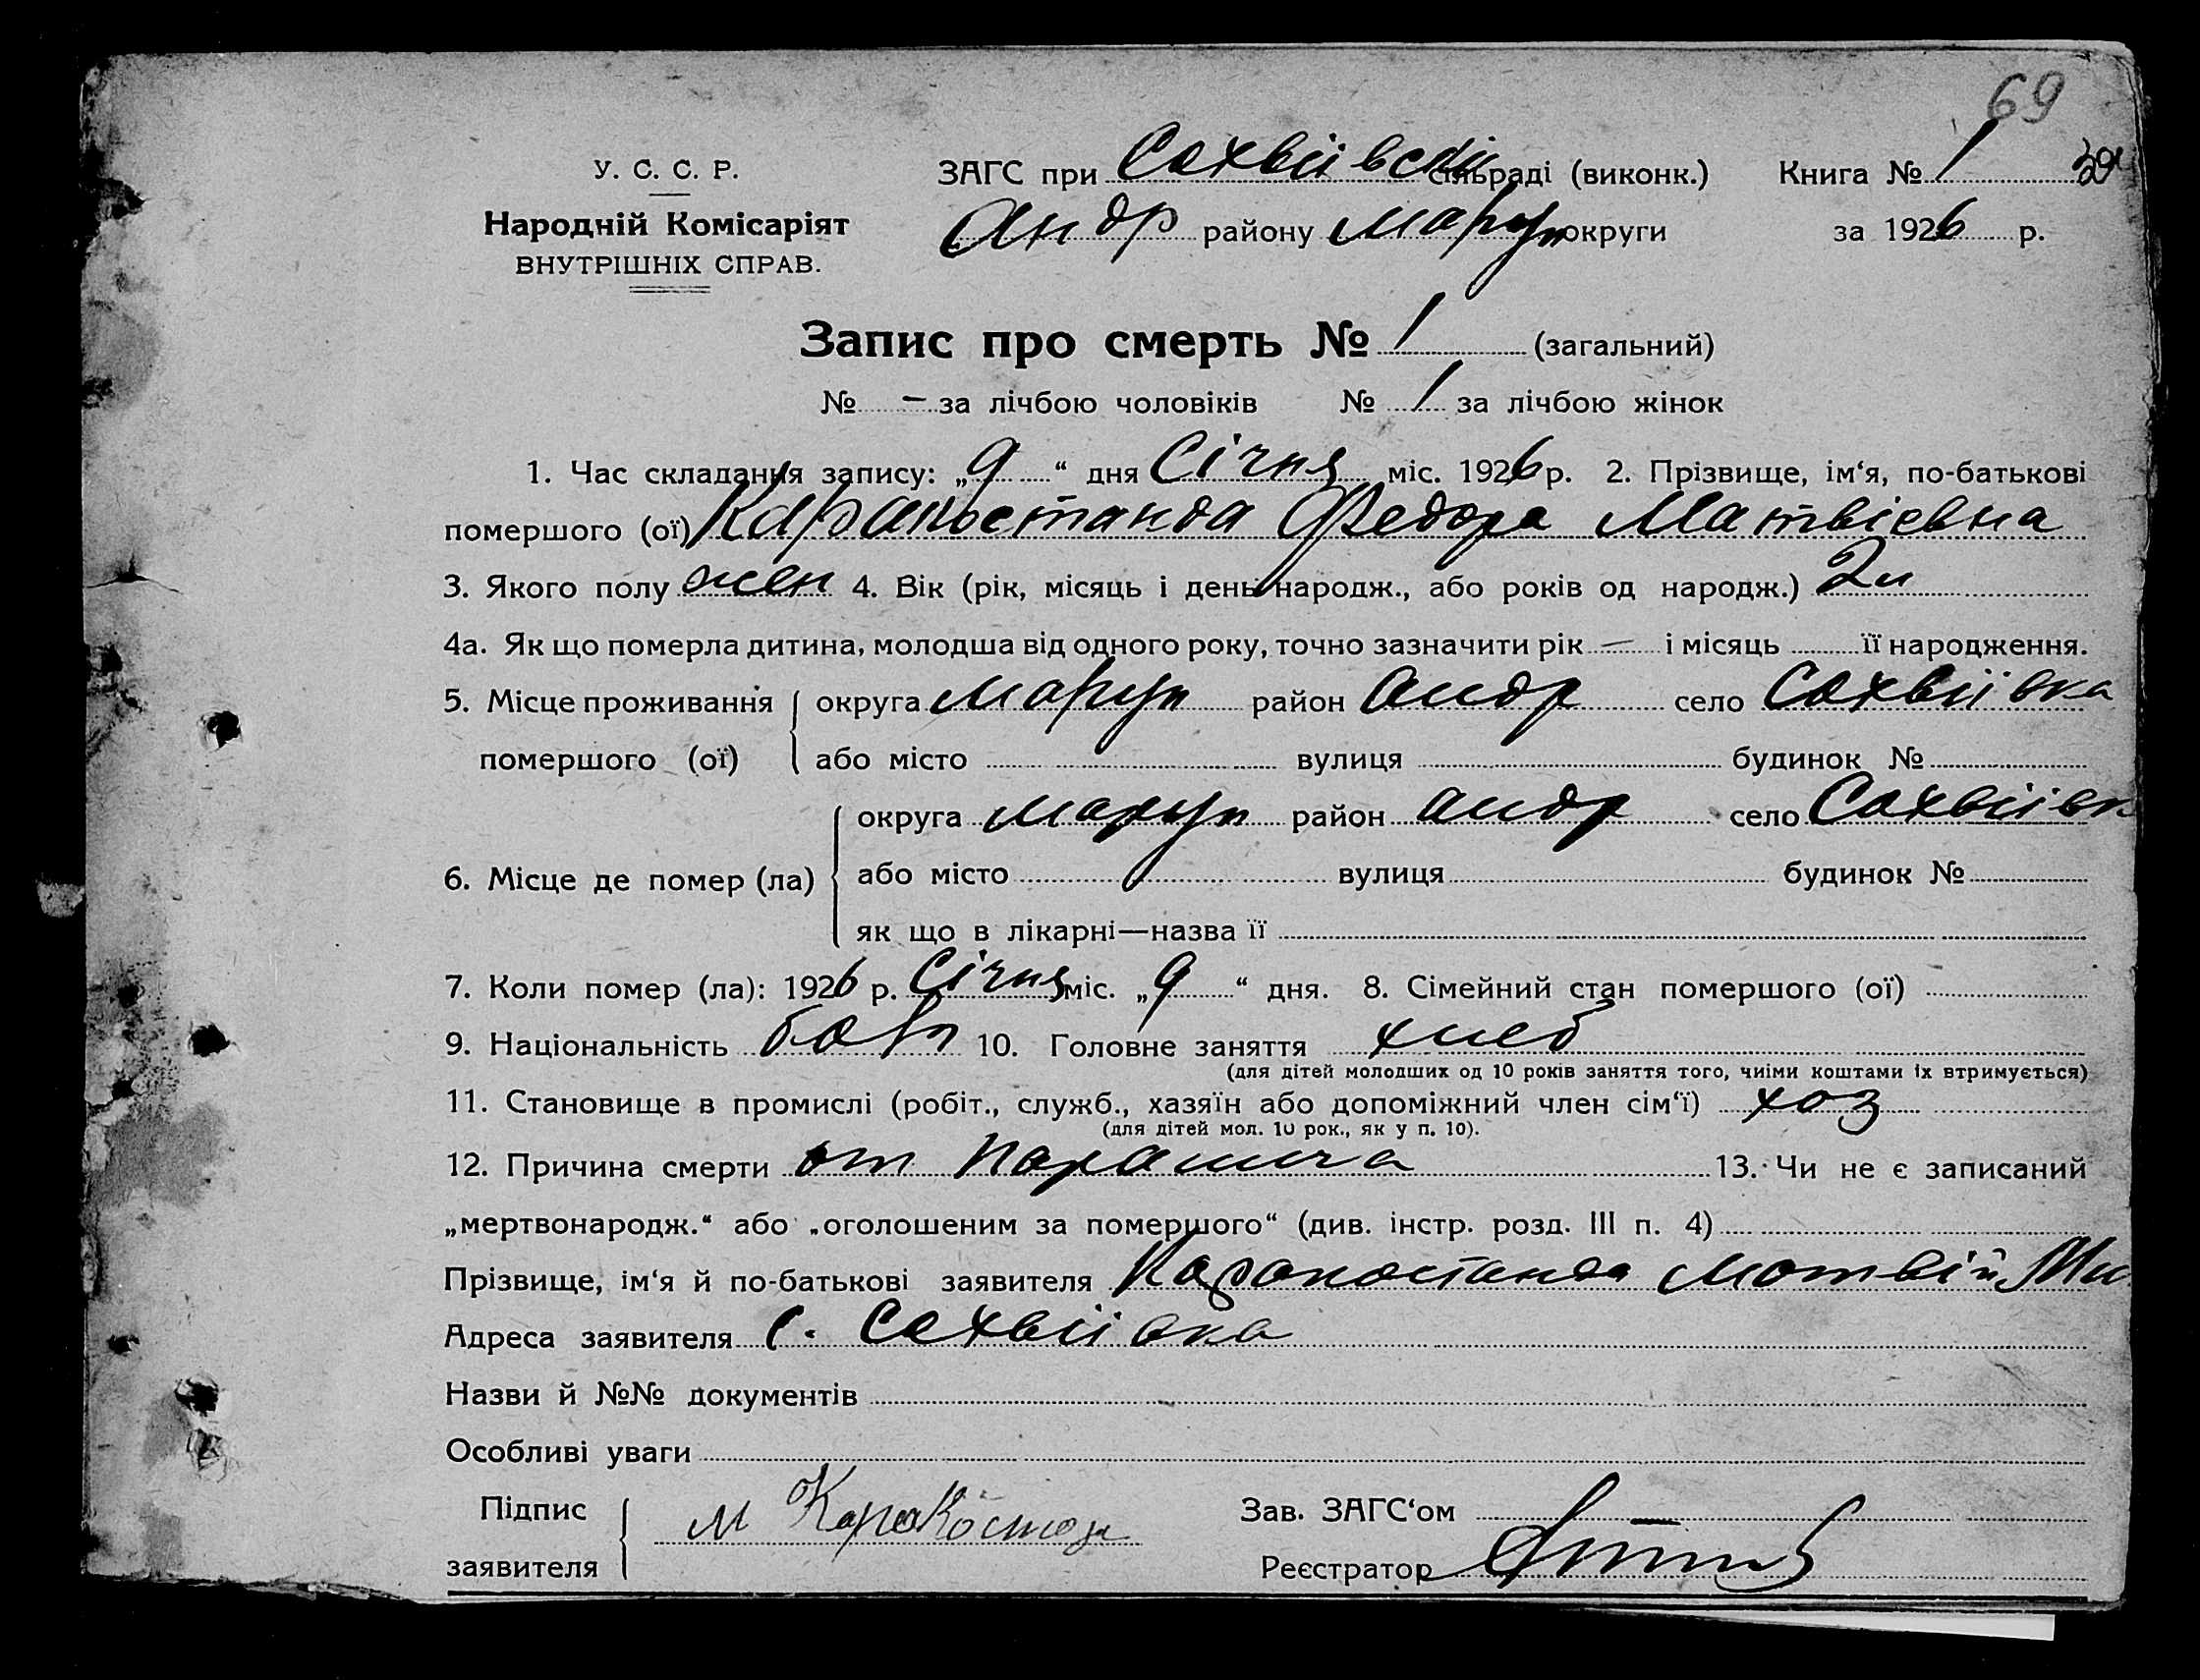 69
У. С. С. Р.
Народній Комісаріят
ВНУТРІШНІХ СПРАВ.
ЗАГС при Сахвиівскій сільраді (виконк.) Книга № 1
Андр району Маруп округи за 1926 р.
Запис про смерть № 1 (загальний)
№ — за лічбою чоловіків № 1 за лічбою жінок
1. Час складання запису: „9“ дня Січня міс. 1926 р. 2. Прізвище, ім‘я, по-батькові
помершого (ої) Каракостанда Федора Матвієвна
3. Якого полу жен 4. Вік (рік, місяць і день народж., або років од народж.)
4а. Як що померла дитина, молодша від одного року, точно зазначити рік — і місяць її народження.
5. Місце проживання помершого (ої) округа Маруп район Андр село Сахвиівка
або місто вулиця будинок №
6. Місце де помер (ла) округа Маруп район Андр село Сахвиівк
або місто вулиця будинок №
як що в лікарні—назва її
7. Коли помер (ла): 1926 р. Січня міс. „9“ дня. 8. Сімейний стан помершого (ої)
9. Національність 10. Головне заняття хлеб
(для дітей молодших од 10 років заняття того, чиїми коштами їх втримується)
11. Становище в промислі (робіт., служб., хазяїн або допоміжний член сім‘ї) хоз
(для дітей мол. 10 рок., як у п. 10).
12. Причина смерти от 13. Чи не є записаний
„мертвонародж.“ або „оголошеним за помершого“ (див. інстр. розд. III п. 4)
Прізвище, ім‘я й по-батькові заявителя Каракостанда Матвій Ми
Адреса заявителя с. Сахвиівка
Назви й №№ документів
Особливі уваги
Підпис заявителя М Каракостан
Зав. ЗАГС‘ом
Реєстратор